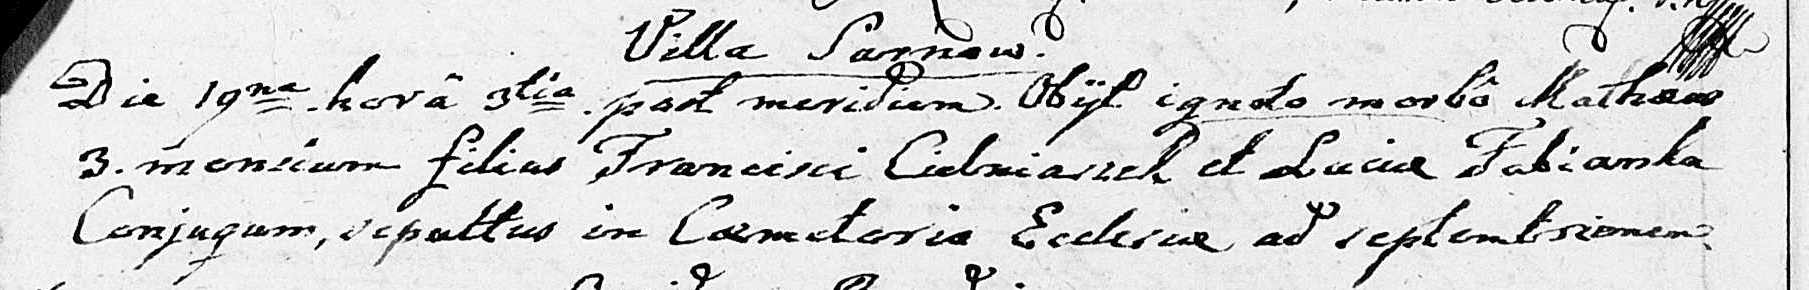 Villa Sarnow.
Die 19na horâ 3tia post meridiem. Obijt ignoto morbô Mathæus
3. mensium filius Francisci Celniaszek et Luciæ Fabianka
Conjugum, sepultus in Cæmeterio Ecclesiæ ad septemtrionem